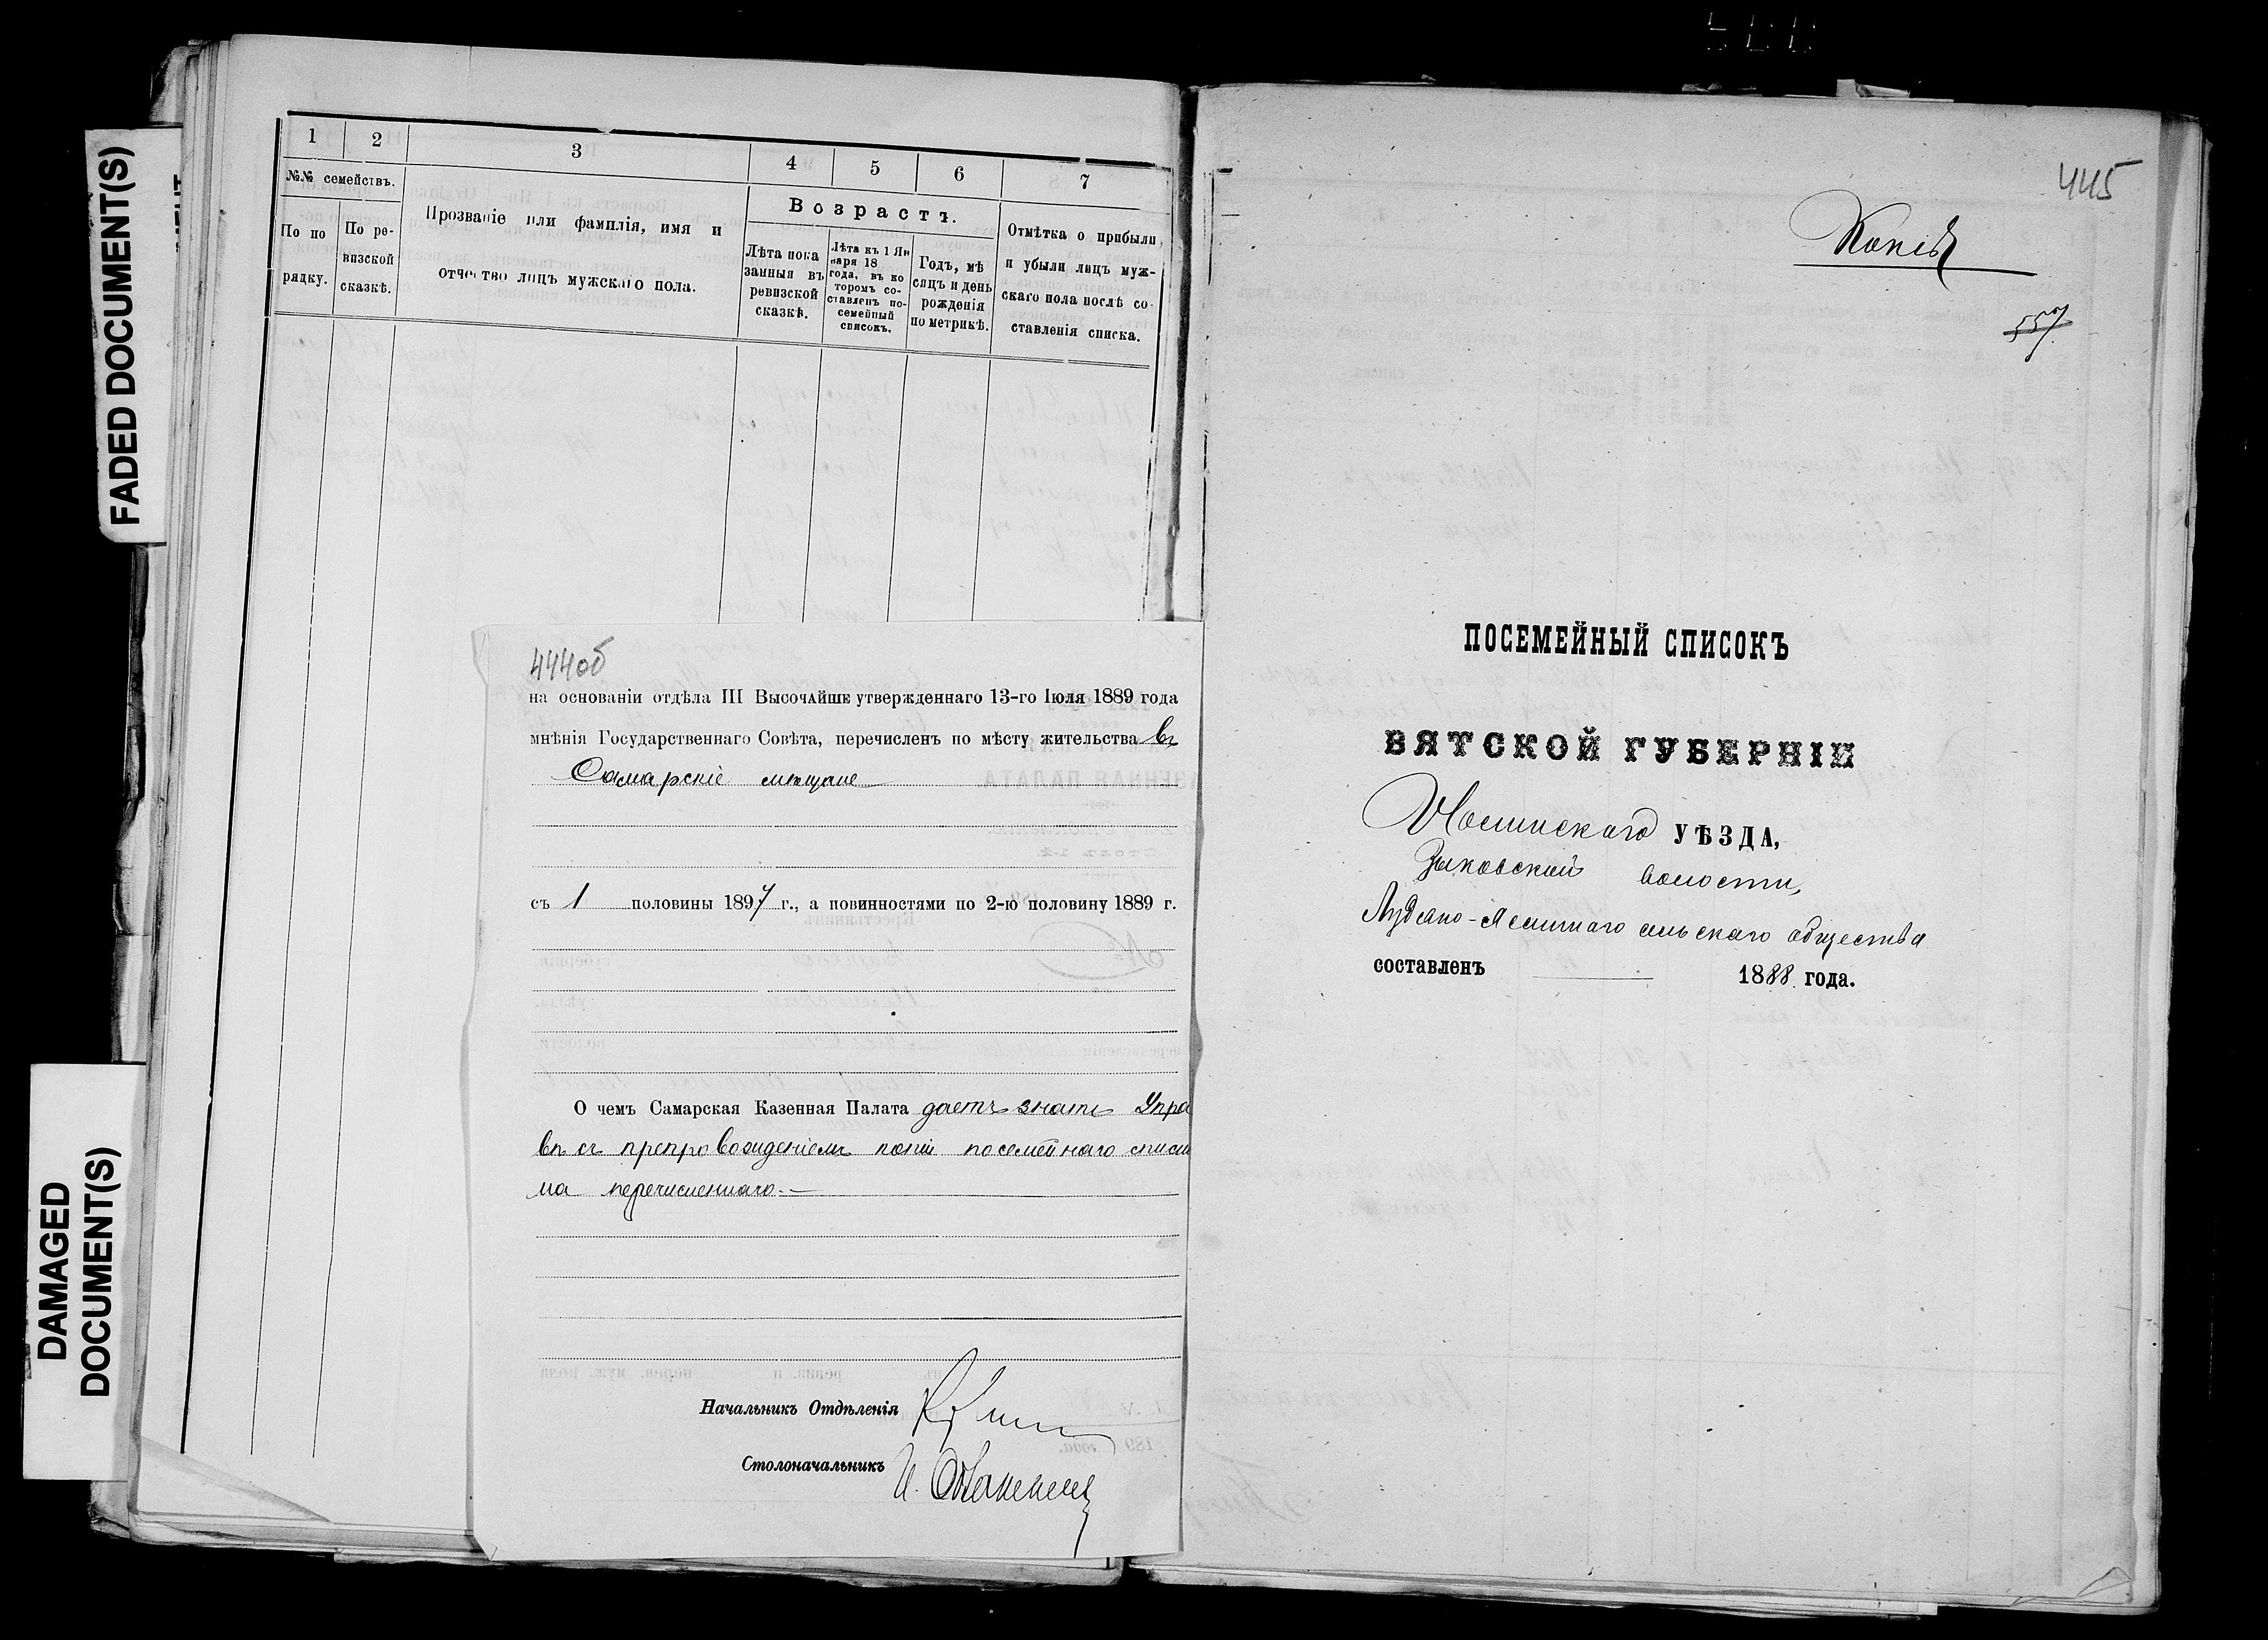 FADED DOCUMENT(S)
DAMAGED
DOCUMENT(S)
1 2 3 4 5 6 7
№№ семействъ.
По по
рядку.
По ре-
визской
сказкѣ.
Прозваніе или фамилія, имя и
отчество лицъ мужскаго пола.
Возрастъ.
Лѣта пока
занныя въ
ревизской
сказкѣ.
Лѣта къ 1 Ян
варя 18
года, въ ко
торомъ со-
ставленъ по-
семейный
списокъ.
Годъ, мѣ
сяцъ и день
рожденія
по метрикѣ.
Отмѣтка о прибыли
и убыли лицъ муж-
скаго пола послѣ со-
ставленія списка.
444об
на основаніи отдѣла III Высочайше утвержденнаго 13-го Іюля 1889 года
мнѣнія Государственнаго Совѣта, перечисленъ по мѣсту жительства въ
Самарскіе мѣщане
съ 1 половины 1897 г., а повинностями по 2-ю половину 1889 г.
О чемъ Самарская Казенная Палата даетъ знать Упра
вѣ съ препровожденіемъ копіи посемейнаго списка
на перечисленнаго.
Начальникъ Отдѣленія
Столоначальникъ
445
Копія
557
ПОСЕМЕЙНЫЙ СПИСОКЪ
ВЯТСКОЙ ГУБЕРНІИ
УѢЗДА,
Зыковской волости,
сельскаго общества
составленъ 1888 года.